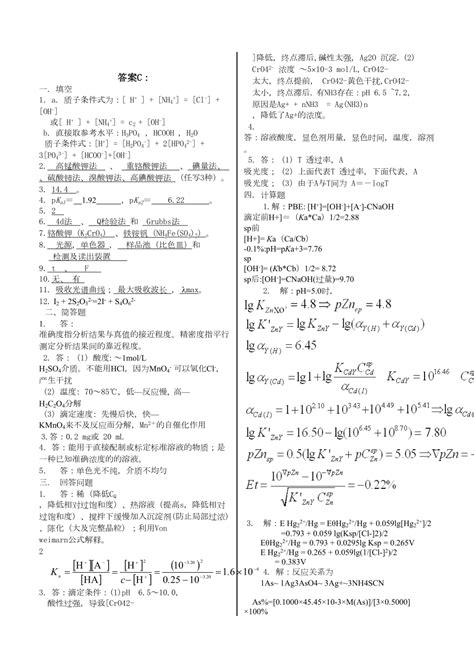 答案C：
一．填空
1. a. 质子条件式为：[ H⁺ ] + [NH₄⁺] = [Cl⁻] + [OH⁻]
或[ H⁺ ] + [NH₄⁺] = c₂ + [OH⁻]
b. 直接取参考水平：H₃PO₄ ，HCOOH ，H₂O
质子条件式：[H⁺] = [H₂PO₄⁻] + 2[HPO₄²⁻] +
3[PO₄³⁻] + [HCOO⁻]+[OH⁻]
2. 高锰酸钾法 、 重铬酸钾法 、 碘量法、
、硫酸铈法、溴酸钾法、高碘酸钾法 （任写3种）。
3. 14.4 。
4. pKₐ₁＝ 1.92 ，pKₐ₂＝ 6.22 。
5. 2
6. 4d法 、 Q检验法 和 Grubbs法
7. 铬酸钾（K₂CrO₄） 、铁铵钒（NH₄Fe(SO₄)₂）。
8. 光源，单色器 、 样品池（比色皿）和
检测及读出装置
9. t 、 F
10. 无、 有
11. 吸收光谱曲线； 最大吸收波长 ， λmax。
12. I₂ + 2S₂O₃²⁻=2I⁻ + S₄O₆²⁻
二、简答题
1. 答：
准确度指分析结果与真值的接近程度．精密度指平行
测定分析结果间的靠近程度。
2. 答：(1) 酸度：～1mol/L
H₂SO₄介质，不能用HCl，因为MnO₄⁻ 可以氧化Cl⁻，
产生干扰
(2) 温度：70～85℃，低—反应慢，高—
H₂C₂O₄分解
(3) 滴定速度：先慢后快，快—
KMnO₄来不及反应而分解，Mn²⁺的自催化作用
3. 答：0.2 mg或 20 mL
4. 答：能用于直接配制或标定标准溶液的物质；是
一种已知准确浓度的的溶液。
5. 答：单色光不纯，介质不均匀
三 回答问题
1. 答：稀（降低C_Q
，降低相对过饱和度），热溶液（提高s，降低相对
过饱和度），搅拌下缓慢加入沉淀剂（防止局部过浓）
．陈化（大及完整晶粒）；利用Von
weimarn公式解释。
2
Kₐ = [H⁺][A⁻]/[HA] = [H⁺]²/(c−[H⁺]) = (10^−3.20)²/(0.25−10^−3.20) = 1.6×10⁻⁶
3. 答：满足条件：(1)pH 6.5～10.0，
酸性过强，导致[CrO42-
]降低，终点滞后,碱性太强，Ag2O 沉淀．(2)
CrO4²⁻ 浓度 ～5×10-3 mol/L,CrO42-
太大，终点提前， CrO42-黄色干扰,CrO42-
太小，终点滞后．有NH3存在：pH 6.5 ~7.2,
原因是Ag+ + nNH3 = Ag(NH3)n
，降低了Ag+的浓度。
4.
答：溶液酸度，显色剂用量，显色时间，温度．溶剂
。
5．答： (1) T 透过率，A
吸光度； (2) 上面代表T 透过率，下面代表，A
吸光度； (3) 由于A与T间为 A＝－logT
四．计算题
1.解：PBE: [H⁺]=[OH⁻]+[A⁻]-CNaOH
滴定前H+]＝（Ka*Ca）1/2=2.88
sp前
[H+]= Ka（Ca/Cb）
-0.1%:pH=pKa+3=7.76
sp
[OH⁻]= (Kb*Cb) 1/2= 8.72
sp后:[OH⁻]=CNaOH(过量)=9.70
2. 解：pH=5.0时，
lg K_ZnXO' = 4.8 ⇒ pZn_ep = 4.8
lg K'_ZnY = lg K_ZnY − lg(α_Y(H) + α_Y(Cd))
lg α_Y(H) = 6.45
lg α_Y(Cd) = lg1 + lg K_CdY C_Cd^sp / α_Cd(I) K_CdY = 10^16.46 C
α_Cd(I) = 1+10^2.10+10^3.43+10^4.49+10^5.41 ⇒ lg α
lg K'_ZnY = 16.50 − lg(10^6.45+10^8.70) = 7.80
pZn_sp = 0.5(lg K' + pC_Zn^sp) = 5.05 ⇒ ∇pZn =
Et = (10^∇pZn − 10^−∇pZn) / √(K'_ZnY C_Zn^sp) = −0.22%
3. 解：E Hg₂²⁺/Hg = EθHg₂²⁺/Hg + 0.059lg[Hg₂²⁺]/2
=0.793 + 0.059 lg(Ksp/[Cl-]2)/2
EθHg₂²⁺/Hg = 0.793 + 0.0295lg Ksp = 0.265V
E Hg₂²⁺/Hg = 0.265 + 0.059lg(1/[Cl-]2)/2
= 0.383V
4. 解：反应关系为
1As~ 1Ag3AsO4~ 3Ag+~3NH4SCN
As%=[0.1000×45.45×10-3×M(As)]/[3×0.5000]
×100%